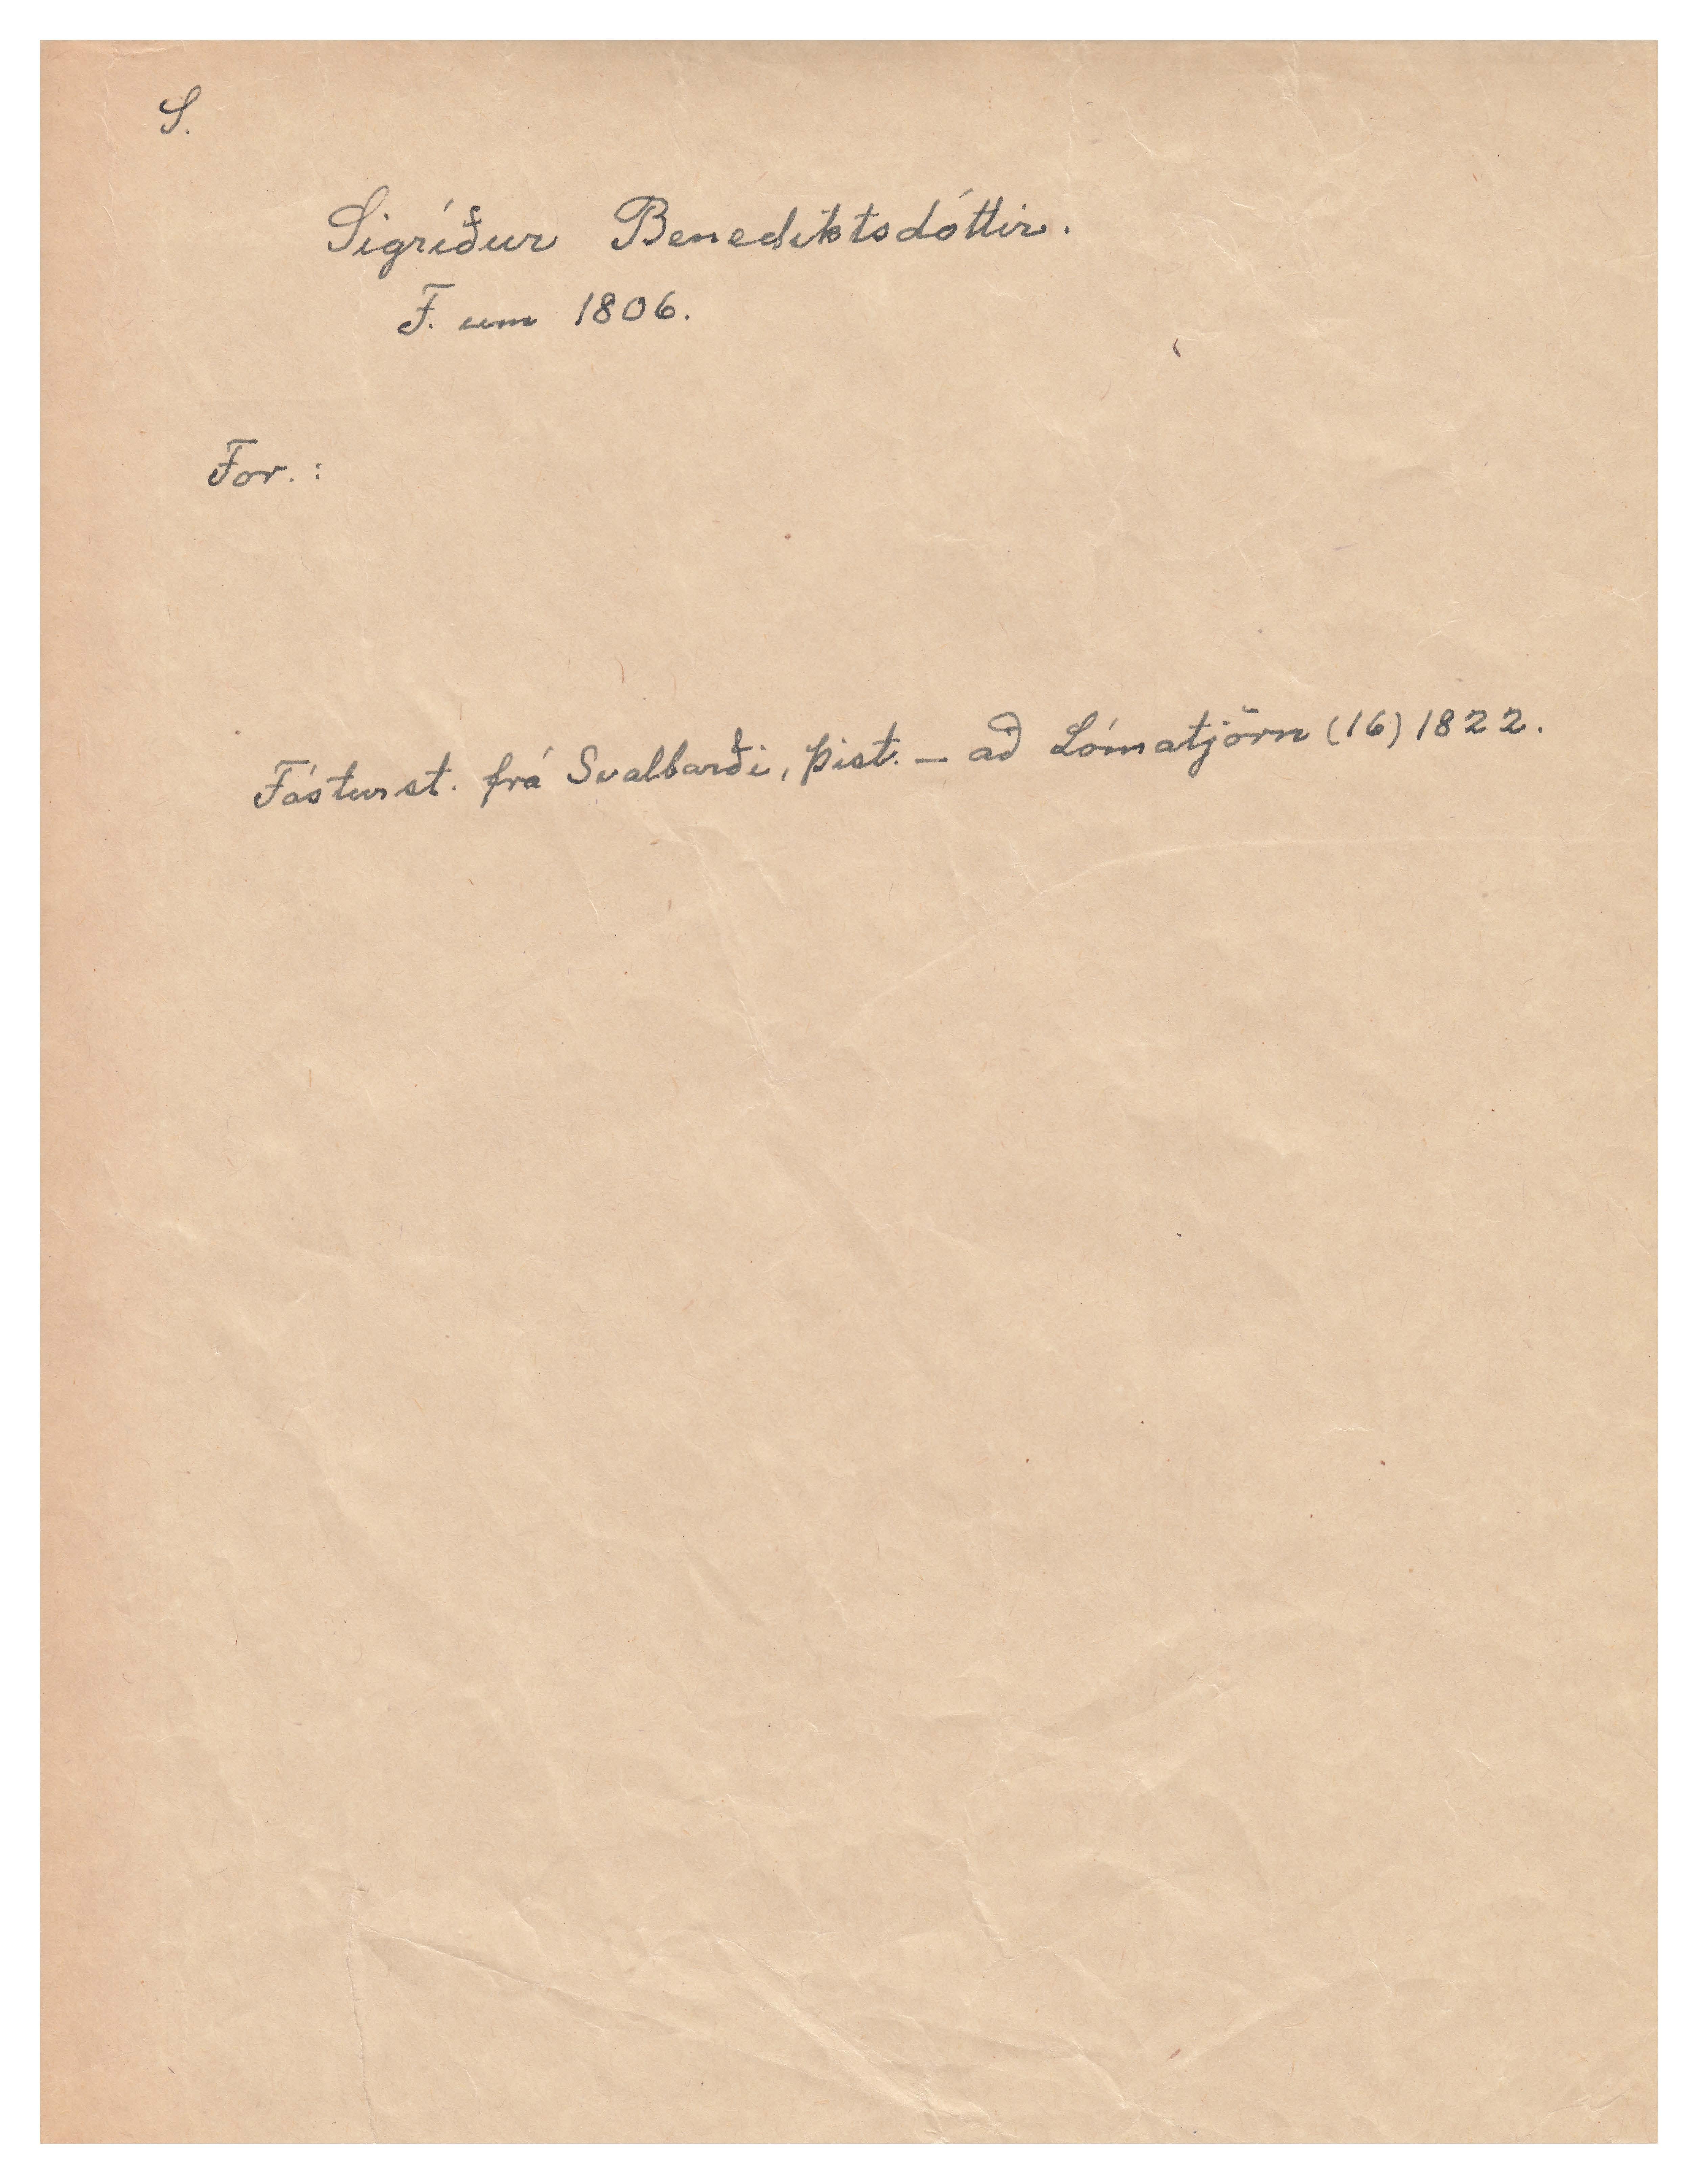 S.
Sigríður Benediktsdóttir.
F. um 1806.
For. :
Fósturst. frá Svalbarði, Þist. – að Lómatjörn (16) 1822.